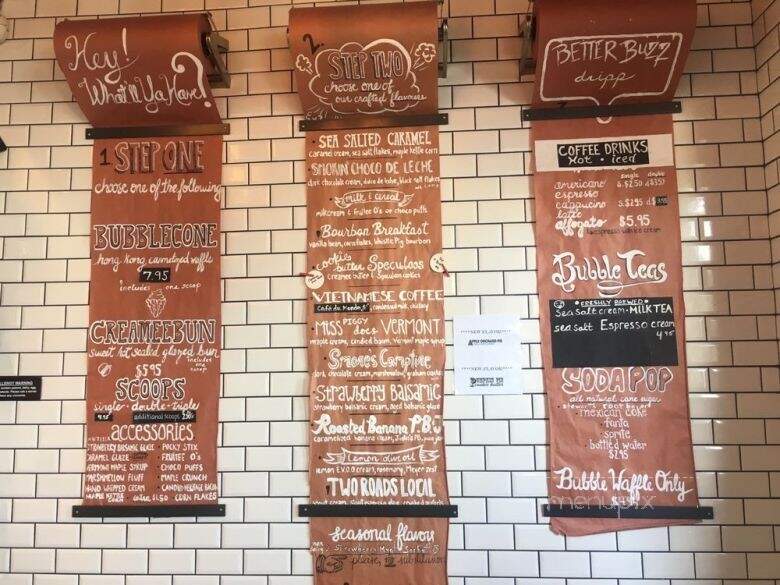 Hey!
What'll Ya Have?
1 STEP ONE
choose one of the following
BUBBLECONE
hong kong caramelized waffle
7.95
includes one scoop
CREAMEEBUN
sweet hot sealed glazed bun
includes one scoop
$5.95
SCOOPS
single · double · triple
4.95
additional scoops
accessories
NUTELLA · POCKY STIX
STRAWBERRY BALSAMIC GLAZE · FRUITEE O's
CARAMEL GLAZE · CHOCO PUFFS
VERMONT MAPLE SYRUP · MAPLE CRUNCH
MARSHMALLOW FLUFF · CANDIED VERMONT BACON
HAND WHIPPED CREAM · CORN FLAKES
MAPLE KETTLE CORN
extra $1.50
2. STEP TWO
choose one of
our crafted flavours
· SEA SALTED CARAMEL
caramel cream, sea salt flakes, maple kettle corn
SMOKIN' CHOCO DE LECHE
dark chocolate cream, dulce de leche, black salt flakes
milk & cereal
milkcream & fruitee O's or choco puffs
Bourbon Breakfast
vanilla bean, corn flakes, Whistle Pig bourbon
cookie butter Speculoos
creamee butter & Speculoos cookies
VIETNAMESE COFFEE
Café du Monde, condensed milk, chicory
MISS PIGGY does VERMONT
maple cream, candied bacon, Vermont maple syrup
Smores Campfire
dark chocolate cream, marshmallow, graham cracker
Strawberry Balsamic
strawberry balsamic cream, aged balsamic glaze
Roasted Banana P.B.
caramelized banana cream,
Lemon olive oil
lemon E.V.O.O cream, rosemary, Meyer zest
TWO ROADS LOCAL
seasonal flavors
please,
****NEW FLAVOR****
APPLE ORCHARD PIE
****NEW FLAVOR****
PUMPKIN PIE
BETTER BUZZ
dripp
COFFEE DRINKS
Hot · iced
single double
americano s. $2.50
espresso
cappucino s. $2.95
latte
affogato $5.95
espresso with ice cream
Bubble Teas
· FRESHLY BREWED ·
Sea Salt cream · MILK TEA
sea salt Espresso cream
4.95
SODA POP
all natural cane sugar
· mexican coke
· fanta
· sprite
· bottled water
$2.95
Bubble Waffle Only
menupix
ALLERGY WARNING